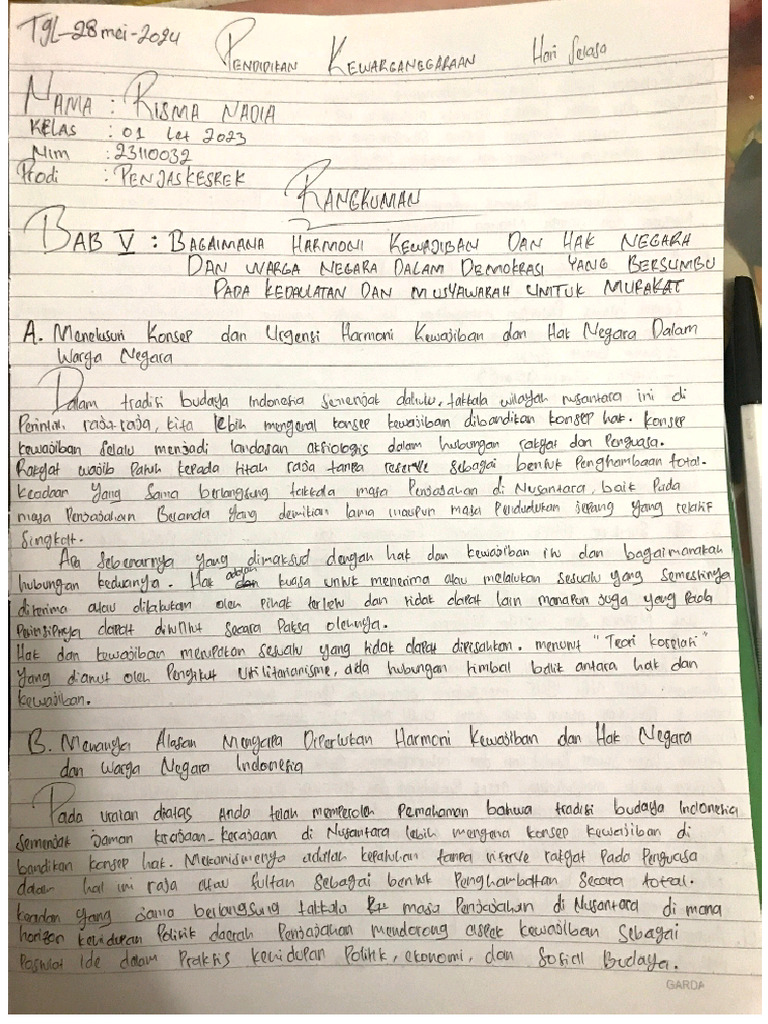 Tgl-28 mei-2024
PENDIDIKAN KEWARGANEGARAAN Hari Selasa
NAMA : RISMA NADIA
KELAS : 01 Let 2023
Nim : 23110032
Prodi : PENJASKESREK
RANGKUMAN
BAB V : BAGAIMANA HARMONI KEWAJIBAN DAN HAK NEGARA
DAN WARGA NEGARA DALAM DEMOKRASI YANG BERSUMBU
PADA KEDAULATAN DAN MUSYAWARAH UNTUK MURAKAT
A. Menelusuri Konsep dan Urgensi Harmoni Kewajiban dan Hak Negara Dalam
Warga Negara
Dalam tradisi budaya Indonesia semenjak dahulu, takkala wilayah nusantara ini di
Perintah raja-raja, kita lebih mengenal konsep kewajiban dibandikan konsep hak. Konsep
kewajiban selalu menjadi landasan aksiologis dalam hubungan rakyat dan Penguasa.
Rakyat wajib Patuh kepada titah raja tanpa reserve sebagai bentuk Penghambaan total.
Keadaan Yang Sama berlangsung takkala masa Penjajahan di Nusantara, baik Pada
masa Penjajahan Beranda Yang demikian lama maupun masa Pendudukan jepang yang relatif
Singkat.
Apa Sebenarnya yang dimaksud dengan hak dan kewajiban itu dan bagaimanakah
hubungan keduanya. Hak adalah kuasa untuk menerima atau melakukan sesuatu yang Semestinya
diterima atau dilakukan oleh pihak tertentu dan tidak dapat lain manapun juga yang Pada
Perinsipnya dapat dituntut secara Paksa olehnya.
Hak dan kewajiban merupakan sesuatu yang tidak dapat dipisahkan. menurut "Teori korelasi"
Yang dianut oleh Pengikut Utilitarianisme, ada hubungan timbal balik antara hak dan
kewajiban.
B. Menanya Alasan Mengapa Diperlukan Harmoni Kewajiban dan Hak Negara
dan Warga Negara Indonesia
Pada uraian diatas Anda telah memperoleh Pemahaman bahwa tradisi budaya Indonesia
semenjak Jaman kerajaan-kerajaan di Nusantara lebih mengena konsep kewajiban di
bandikan konsep hak. Mekanismenya adalah kepatuhan tanpa riserve rakyat Pada Penguasa
dalam hal ini raja atau Sultan Sebagai bentuk Penghambattan Secara total.
keadaan yang Sama berlangsung takkala masa Penjajahan di Nusantara di mana
horizon kehidupan Politik daerah Penjajahan mendorong aspek kewajiban Sebagai
Postulat Ide dalam Praktis kehidupan Politik, ekonomi, dan Sosial Budaya.
GARDA